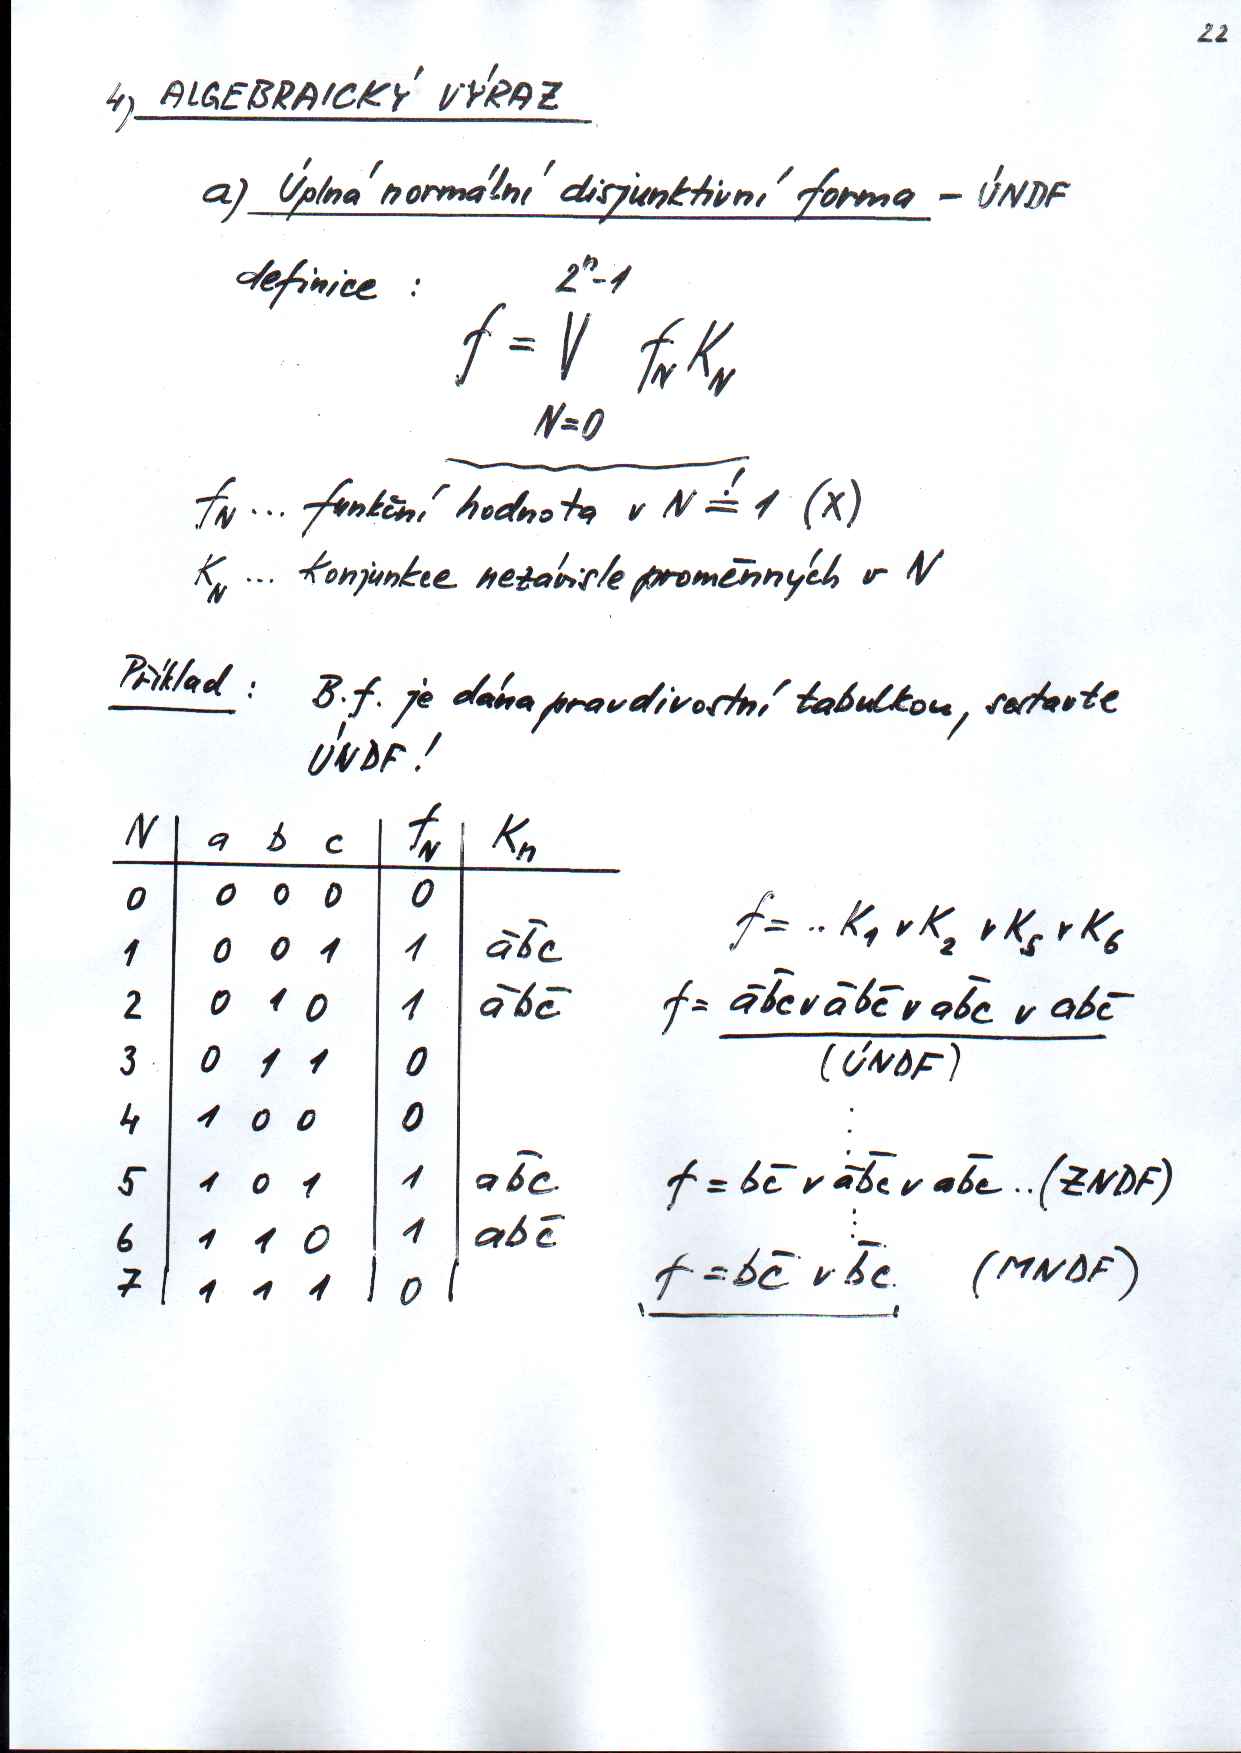 22
4) ALGEBRAICKÝ VÝRAZ
a) Úplná normální disjunktivní forma – ÚNDF
definice :
2ⁿ-1
f = V f_N K_N
N=0
f_N ... funkční hodnota v N =! 1 (X)
K_N ... konjunkce nezávisle proměnných v N
Příklad : B.f. je dána pravdivostní tabulkou, sestavte
ÚNDF!
N | a b c | f_N | K_n
0 | 0 0 0 | 0 |
1 | 0 0 1 | 1 | a̅b̅c
2 | 0 1 0 | 1 | a̅bc̅
3 | 0 1 1 | 0 |
4 | 1 0 0 | 0 |
5 | 1 0 1 | 1 | ab̅c
6 | 1 1 0 | 1 | abc̅
7 | 1 1 1 | 0 |
f = .. K₁ v K₂ v K₅ v K₆
f = a̅b̅c v a̅bc̅ v ab̅c v abc̅
(ÚNDF)
f = bc̅ v a̅b̅c v ab̅c .. (ZNDF)
f = bc̅ v b̅c. (MNDF)